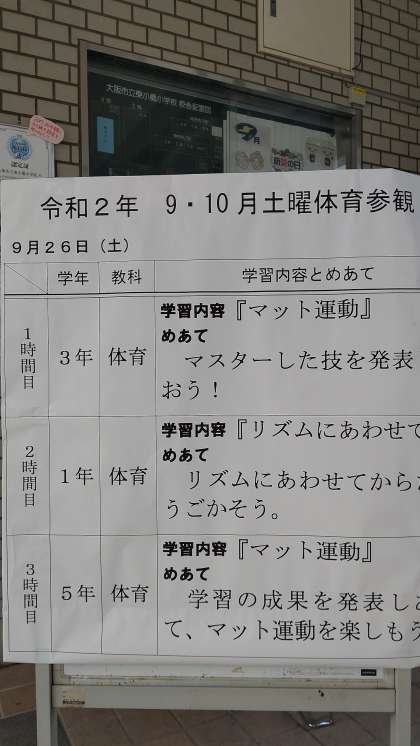 大阪市立東小橋小学校 校舎配置図
9月
令和2年 9・10月土曜体育参観
9月26日（土）
学年 教科 学習内容とめあて
1時間目 3年 体育
学習内容『マット運動』
めあて
マスターした技を発表
おう！
2時間目 1年 体育
学習内容『リズムにあわせて
めあて
リズムにあわせてから
うごかそう。
3時間目 5年 体育
学習内容『マット運動』
めあて
学習の成果を発表し
て、マット運動を楽しもう